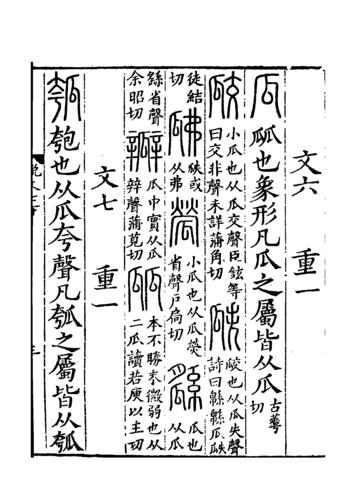 文六 重一
瓜 㼌也象形凡瓜之屬皆从瓜 古華切
㼎 小瓜也从瓜交聲臣鉉等曰交非聲未詳蒲角切 瓞 㼎也从瓜失聲詩曰緜緜瓜瓞
徒結切 𤬏 瓞或从弗 㼆 小瓜也从瓜熒省聲戶扃切 瓜也从瓜
繇省聲余昭切 瓣 瓜中實从瓜辡聲蒲莧切 㼌 本不勝末微弱也从二瓜讀若庾以主切
文七 重一
瓠 匏也从瓜夸聲凡瓠之屬皆从瓠